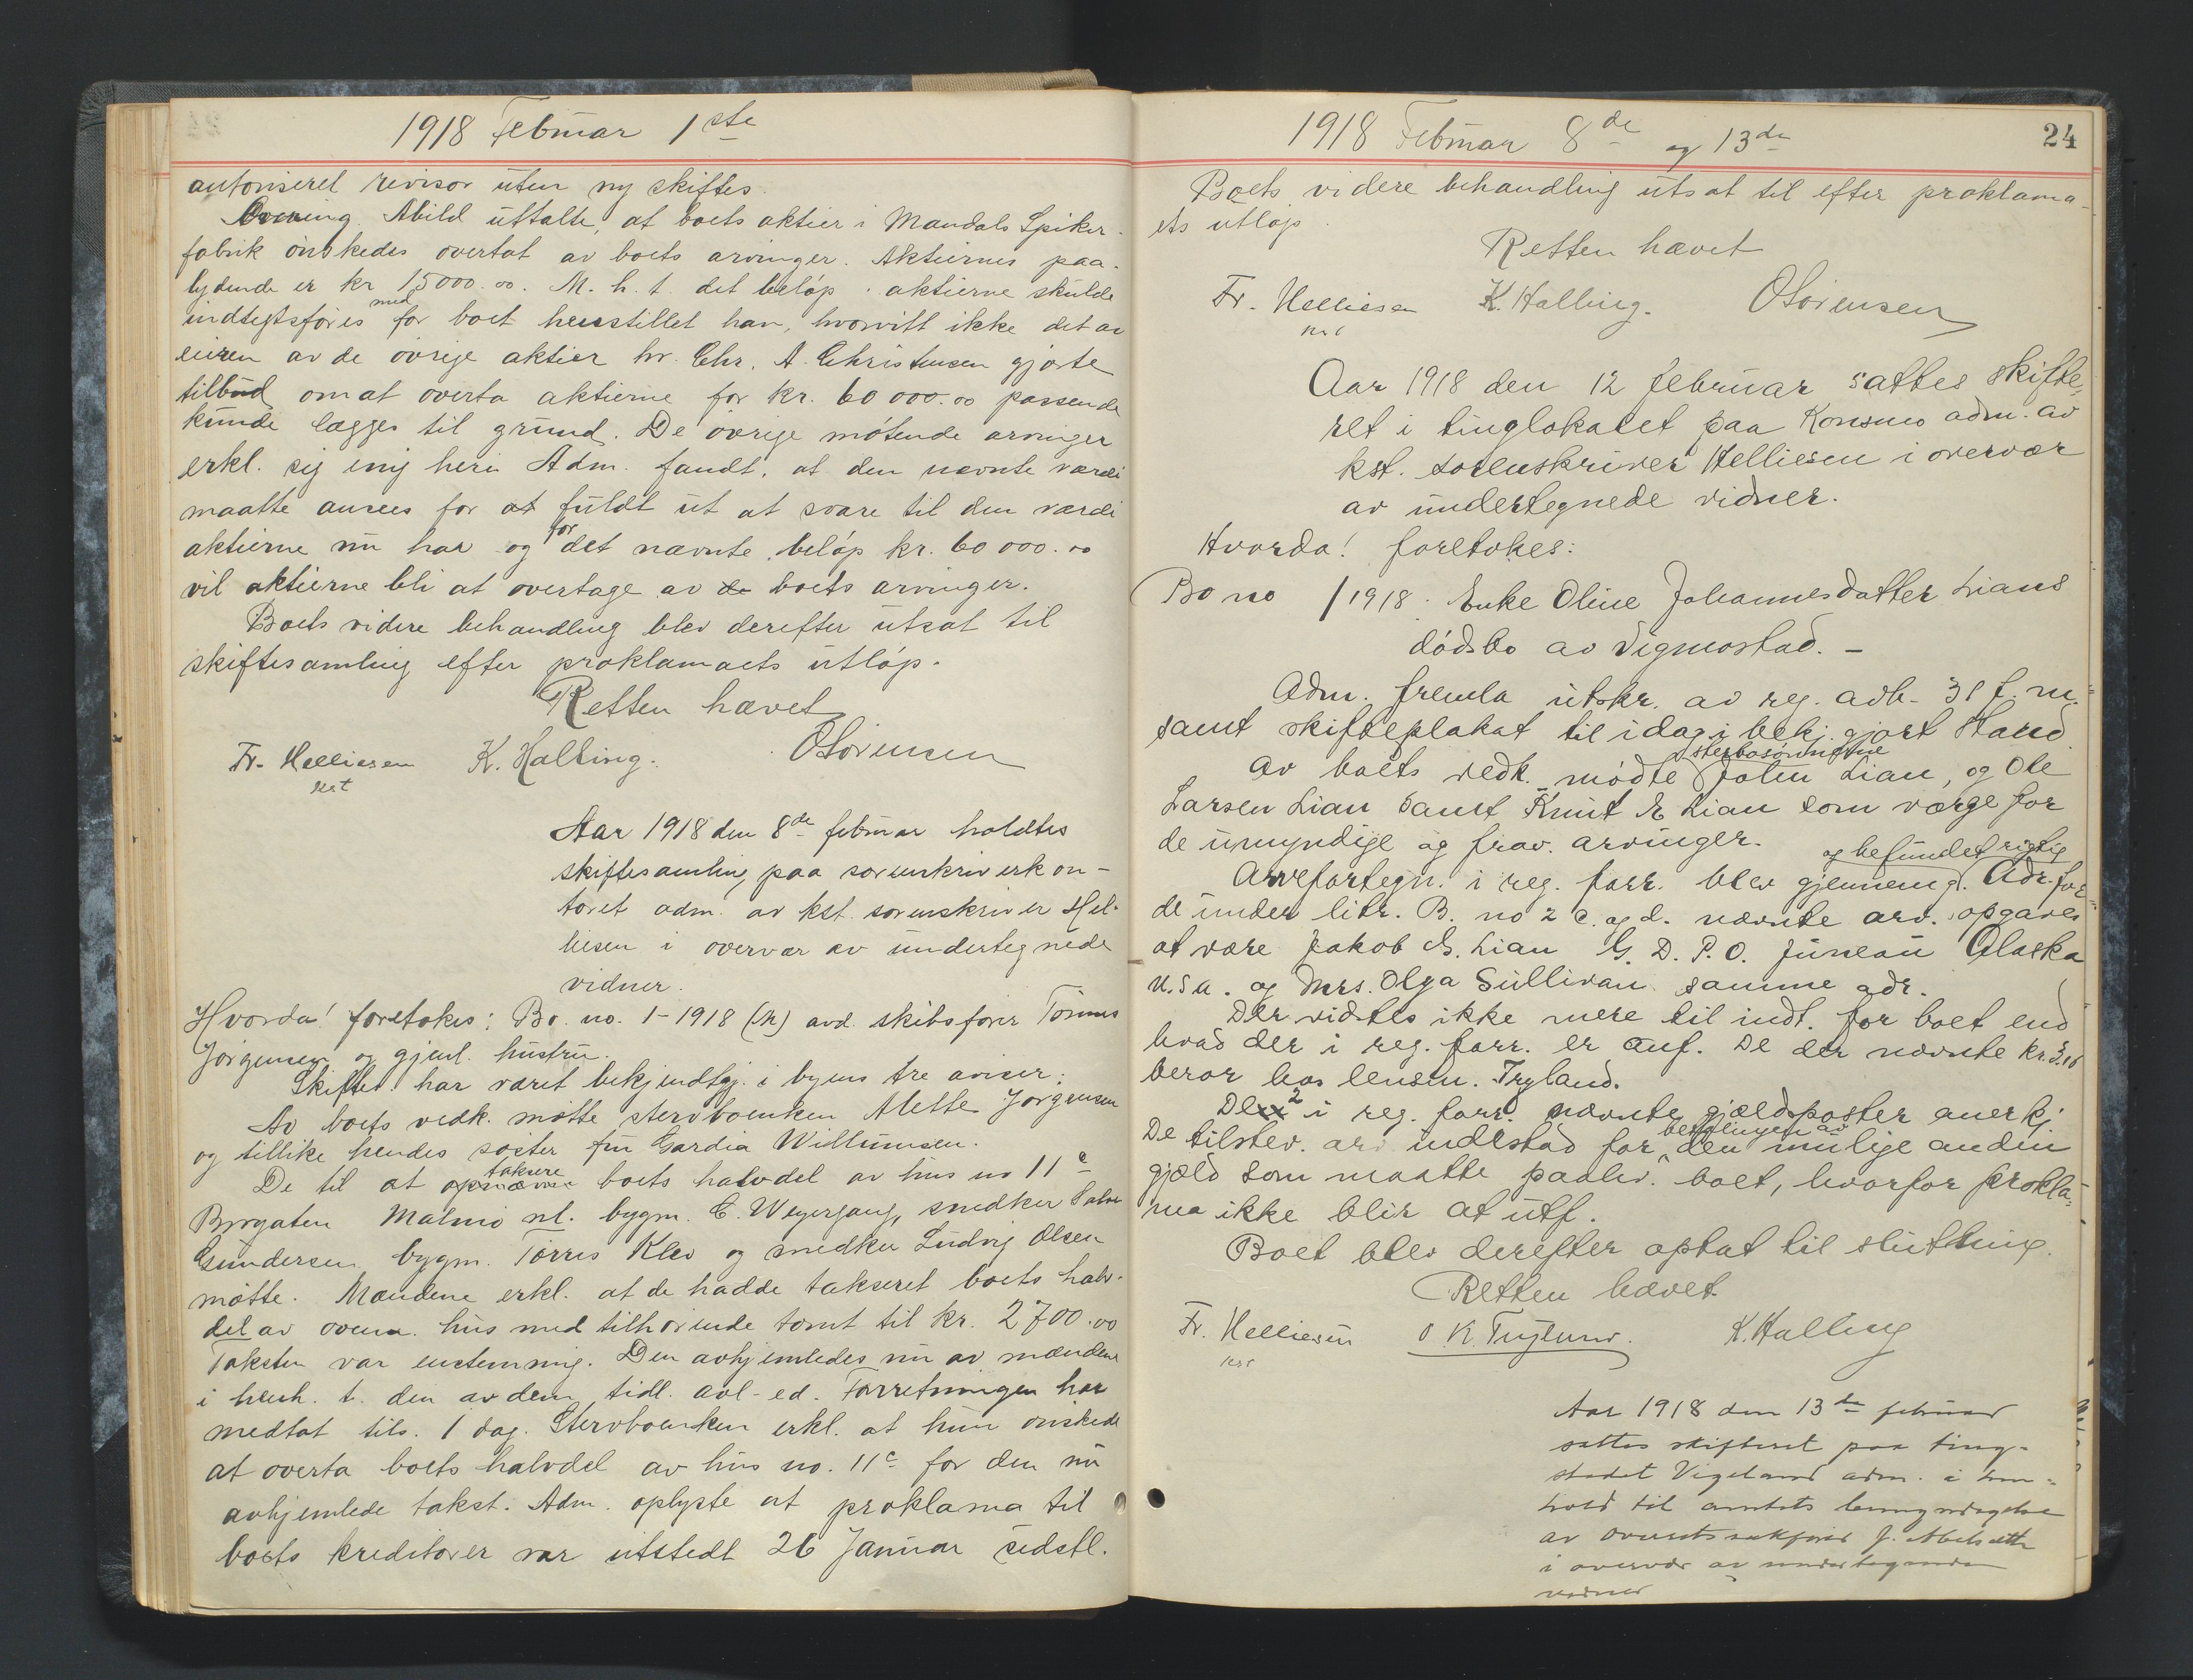 1918 Februar 1ste
autoriseret revisor uten ny skiftes.
Arving Abild uttalte, at boets aktier i Mandals Spiker-
fabrik ønskedes overtat av boets arvinger. Aktiernes paa-
lydende er kr 15000.00. M. h. t. det beløp aktierne skulde
indtegtsføres med for boet henstillet han, hvorvitt ikke det av
eieren av de øvrige aktier hr. Chr. A. Christensen gjorte
tilbud om at overta aktierne for kr. 60 000.00 passende
kunde lægges til grund. De øvrige møtende arvinger
erkl. sig enig heri. Adm. fandt, at den nævnte værdi
maatte ansees for at fuldt ut at svare til den værdi
aktierne nu har og for det nævnte beløp kr. 60 000.00
vil aktierne bli at overtage av de boets arvinger.
Boets videre behandling blev derefter utsat til
skiftesamling efter proklamaets utløp.
Retten hævet
Fr. Helliesen K. Halling. O Sørensen
kst
Aar 1918 den 8de februar holdtes
skiftesamling paa sorenskriverkon-
toret adm. av kst. sorenskriver Hel-
liesen i overvær av undertegnede
vidner.
Hvorda! foretokes: Bo. no. 1-1918 (M) avd. skibsfører Tønnes
Jørgensen og gjenl. hustru.
Skiftet har været bekjendtgj. i byens tre aviser:
Av boets vedk. møtte stervboenken Mette Jørgensen
og tillike hendes søster fru Gardia Willumsen.
De til at opnævne taksere boets halvdel av hus no 11c
Byrgaten Malmø nl. bygm. C. Weyergang, snedker Salve
Gundersen bygm. Tørres Klev og snedker Ludvig Olsen
møtte. Mændene erkl. at de hadde takseret boets halv-
del av ovenn. hus med tilhørende tomt til kr. 2700.00
Taksten var enstemmig. Den avhjemledes nu av mændene
i henh. t. den av dem tidl. avl. ed. Forretningen har
medtat tils. 1 dag. Stervboenken erkl. at hun ønskede
at overta boets halvdel av hus no. 11c for den nu
avhjemlede takst. Adm. oplyste at proklama til
boets kreditorer var utstedt 26 Januar sidstl.
1918 Februar 8de og 13de
24
Boets videre behandling utsat til efter proklama-
ets utløp.
Retten hævet
Fr. Helliesen K. Halling. O Sørensen
kst
Aar 1918 den 12 februar sattes skifte-
ret i tinglokalet paa Konsmo adm. av
kst. sorenskriver Helliesen i overvær
av undertegnede vidner.
Hvorda! foretokes:
Bo no /1918. Enke Oline Johannesdatter Lians
dødsbo av Vigmostad. -
Adm. fremla utskr. av reg. avh. 31 f. m.
samt skifteplakat til idag i bekj. gjort stand
Av boets vedk. mødte sterbosønnerne John Lian, og Ole
Larsen Lian samt Knut E Lian som værge for
de umyndige og frav. arvinger.
Arvefortegn. i reg. forr. blev gjennemg. og befundet rigtig Adr. for
de under litr. B. no 2 c. og d. nævnte arv. opgaves
at være Jakob G. Lian G. D. P. O. Juneau Alaska
U.S.A. og Mrs. Olga Sullivan samme adr.
Der vidstes ikke mere til indt. for boet end
hvad der i reg. forr. er anf. De der nævnte kr
beror hos lensm. Tryland.
De 2 i reg. forr. nævnte gjældsposter anerkj.
De tilstev. arv indestod for betalingen av den mulige anden
gjæld som maatte paalev. boet, hvorfor prokla-
ma ikke blir at utf.
Boet blev derefter optat til slutting.
Retten hævet
Fr. Helliesen O K. Tryland. K. Halling
kst
Aar 1918 den 13de februar
sattes skifteret paa ting-
stedet Vigeland adm. i hen-
hold til amtets bemyndigelse
av overretssakfører J.
i overvær av undertegnede
vidner